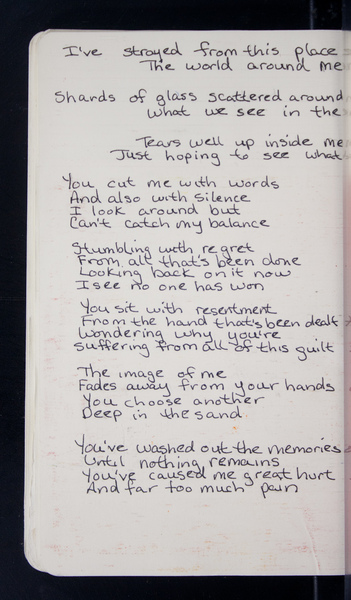 I've strayed from this place
The world around me
Shards of glass scattered around
what we see in the
Tears well up inside me
Just hoping to see what
You cut me with words
And also with silence
I look around but
Can't catch my balance
Stumbling with regret
From all that's been done
Looking back on it now
I see no one has won
You sit with resentment
From the hand that's been dealt
Wondering why you're
suffering from all of this guilt
The image of me
Fades away from your hands
You choose another
Deep in the sand.
You've washed out the memories
Until nothing remains
You've caused me great hurt
And far too much pain